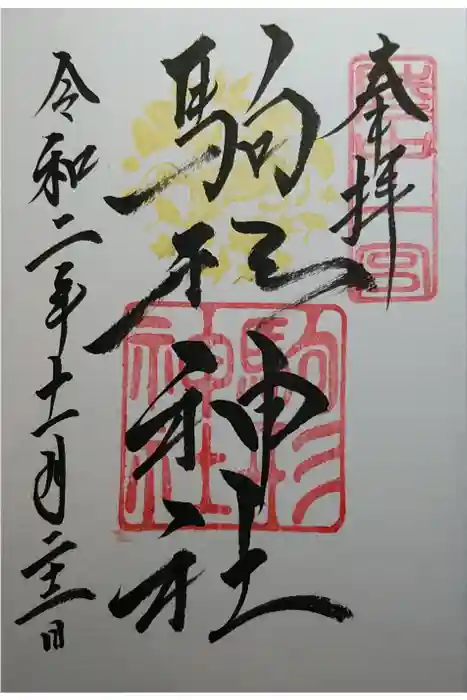 奉拝
駒形神社
令和二年十一月二十三日
駒形
神社